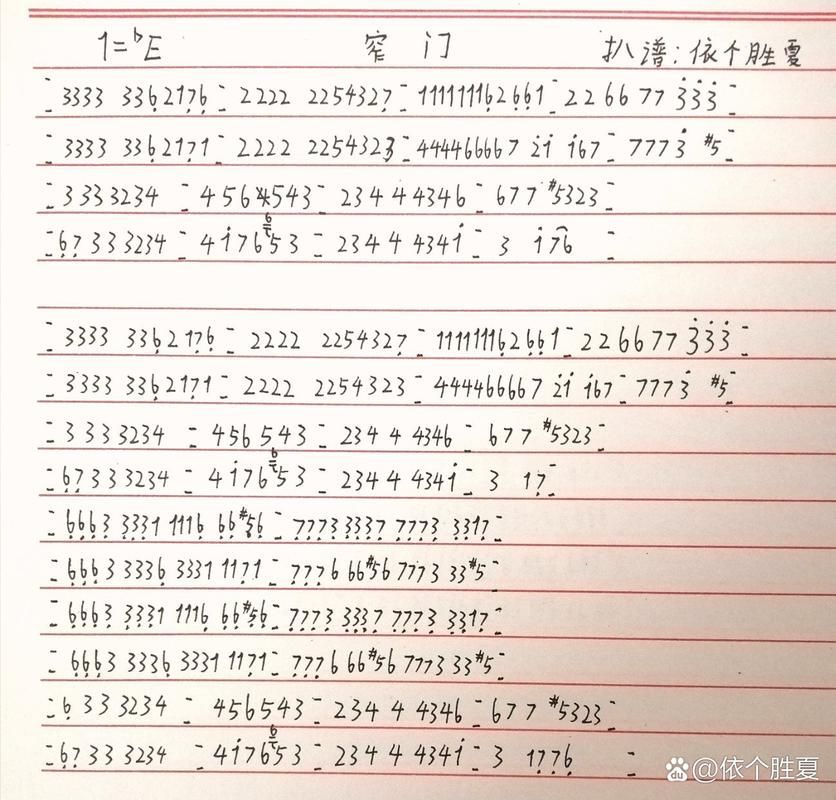 1=♭E 窄门 扒谱：依个胜夏
- 3333 336̣217̣6̣ - 2222 2254327̣ - 11111116̣26̣6̣1 - 226677 3̇3̇3̇ -
- 3333 336̣217̣1 - 2222 2254323 - 444466667 2̇1̇ 1̇67 - 7773̇ #5 -
- 3333234 - 456543 - 23444346 - 677#5323 -
- 6̣7̣333234 - 41̇76⁶53 - 23444341̇ - 3 1̇76 -
- 3333 336̣217̣6̣ - 2222 2254327̣ - 11111116̣26̣6̣1 - 226677 3̇3̇3̇ -
- 3333 336̣217̣1 - 2222 2254323 - 444466667 2̇1̇ 1̇67 - 7773̇ #5 -
- 3333234 - 456543 - 23444346 - 677#5323 -
- 6̣7̣333234 - 41̇76⁶53 - 23444341̇ - 3 17̣ -
- 6̣6̣6̣3 3331 1116̣ 6̣6̣#5̣6̣ - 7̣7̣7̣3 3337̣ 7̣7̣7̣3 3317̣ -
- 6̣6̣6̣3 3336̣ 3331 117̣1 - 7̣7̣7̣6 66#56 7773 33#5 -
- 6̣6̣6̣3 3331 1116̣ 6̣6̣#5̣6̣ - 7̣7̣7̣3 3337̣ 7̣7̣7̣3 3317̣ -
- 6̣6̣6̣3 3336̣ 3331 117̣1 - 7̣7̣7̣6 66#56 7773 33#5 -
- 6̣333234 - 456543 - 23444346 - 677#5323 -
- 6̣7̣333234 - 41̇76⁶53 - 23444341̇ - 3 17̣7̣6̣ -
du @依个胜夏